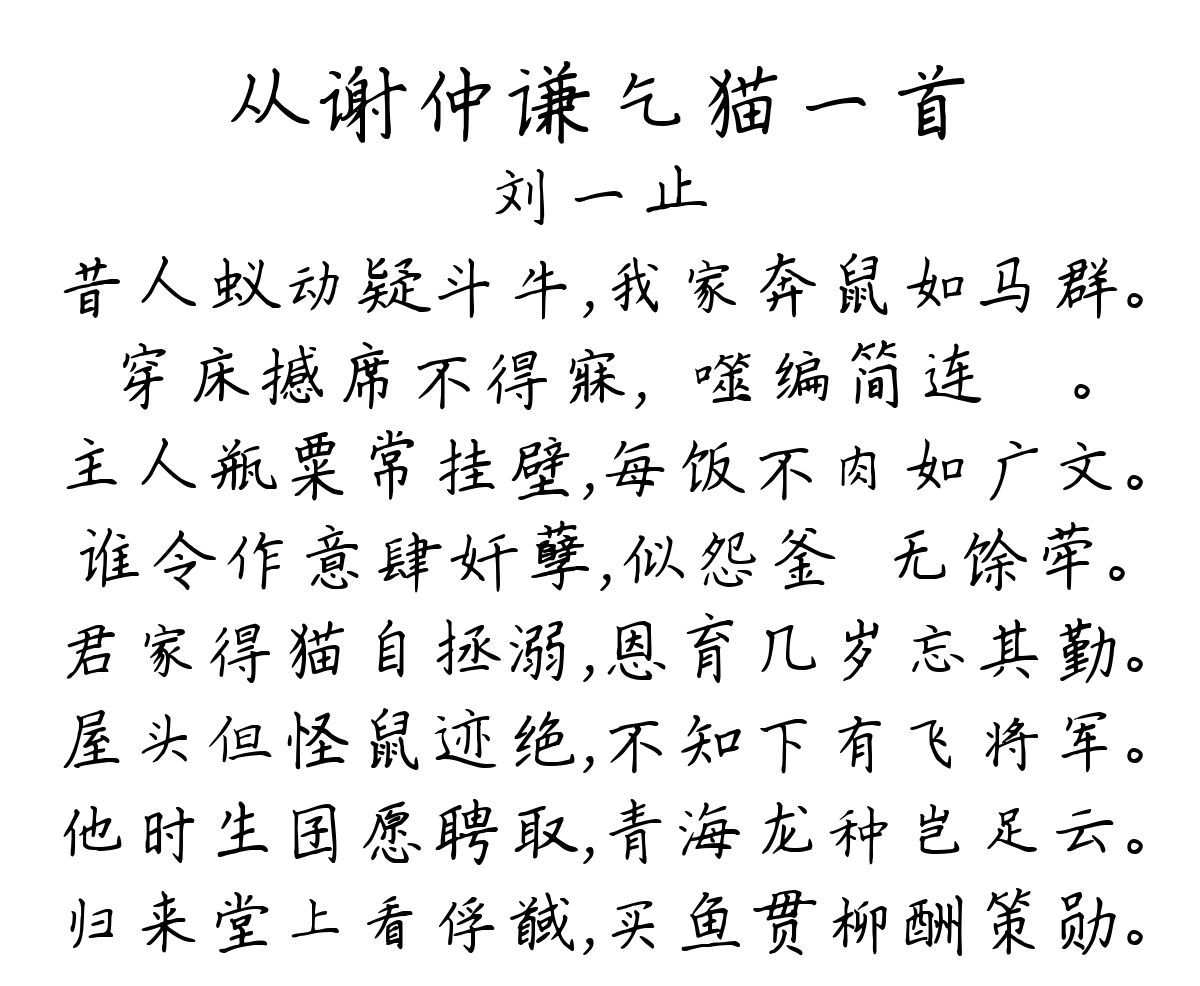 从谢仲谦乞猫一首
刘一止
昔人蚁动疑斗牛,我家奔鼠如马群。
穿床撼席不得寐,噬编简连 。
主人瓶粟常挂壁,每饭不肉如广文。
谁令作意肆奸孽,似怨釜 无馀荤。
君家得猫自拯溺,恩育几岁忘其勤。
屋头但怪鼠迹绝,不知下有飞将军。
他时生囝愿聘取,青海龙种岂足云。
归来堂上看俘馘,买鱼贯柳酬策勋。